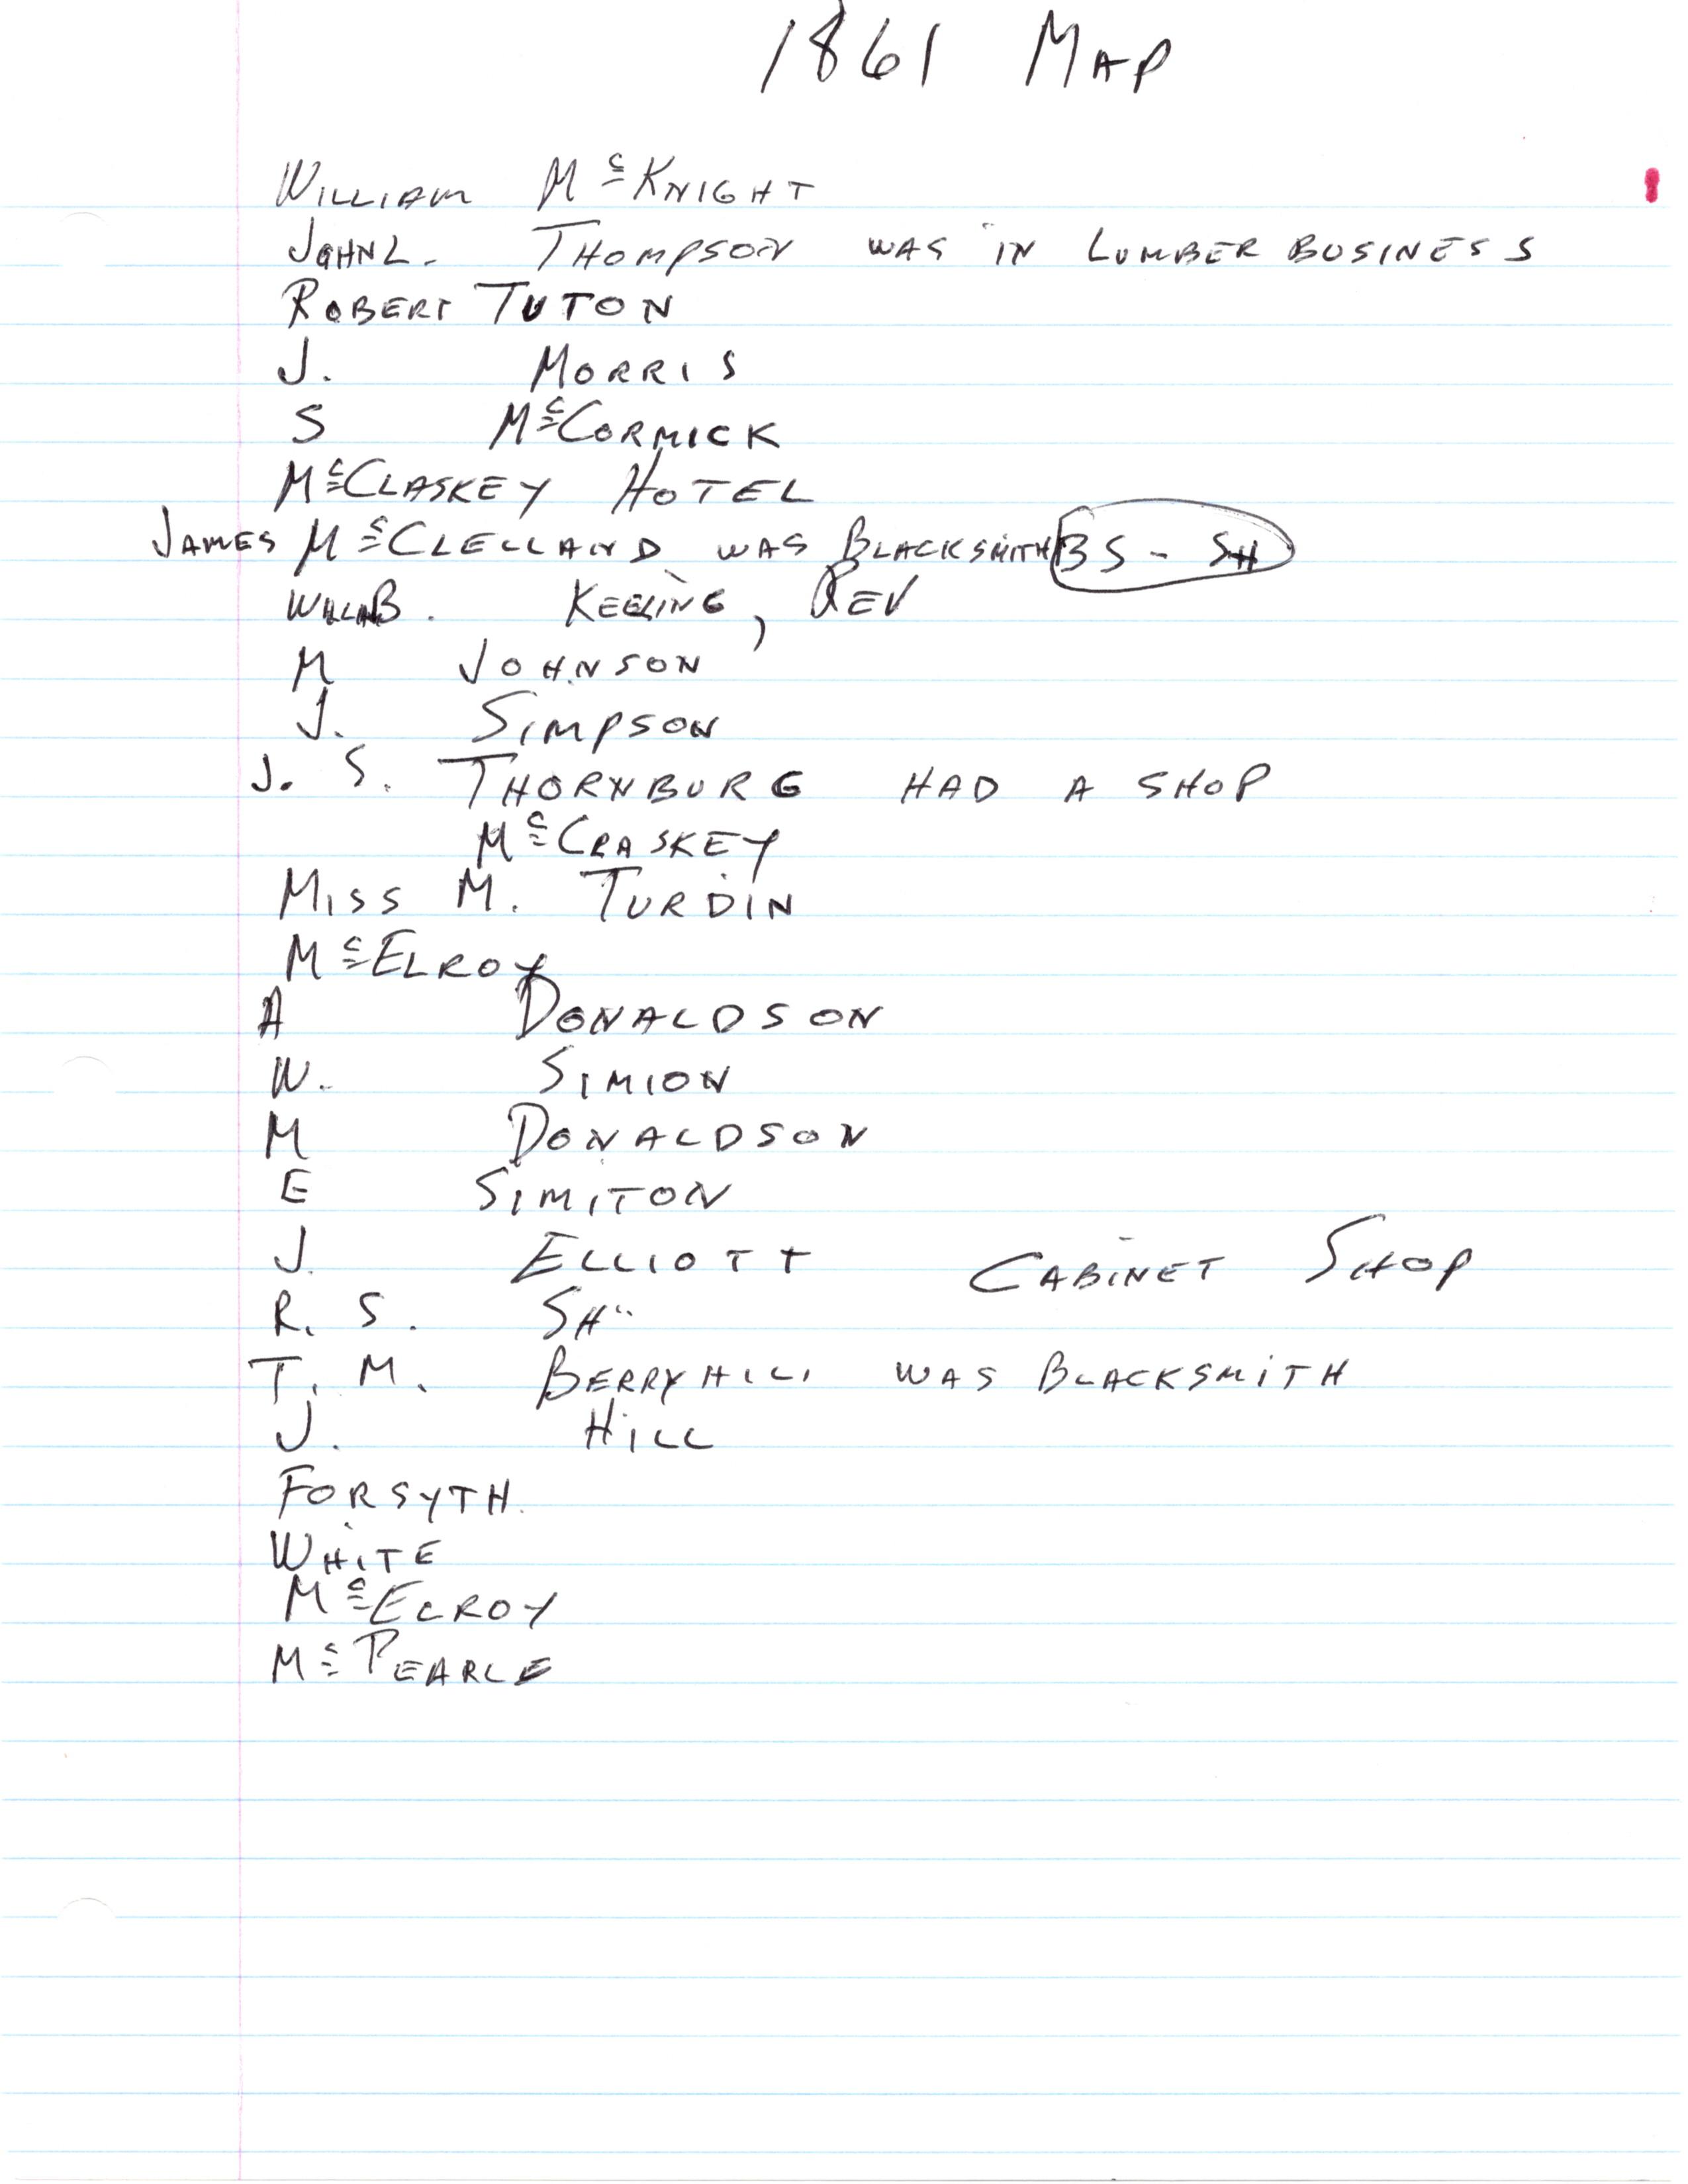 1861 MAP
WILLIAM McKNIGHT
JOHN L. THOMPSON WAS IN LUMBER BUSINESS
ROBERT TUTON
J. MORRIS
S McCORMICK
McCLASKEY HOTEL
JAMES McCLELLAND WAS BLACKSMITH BS - SH
B. KEELING, REV
M JOHNSON
J. SIMPSON
J. S. THORNBURG HAD A SHOP
McCRASKEY
MISS M. TURDIN
McELROY
A DONALDSON
W. SIMION
M DONALDSON
E SIMITON
J. ELLIOTT CABINET SHOP
R. S. SH"
T. M. BERRYHILL WAS BLACKSMITH
J. HILL
FORSYTH.
WHITE
McELROY
McPEARLE